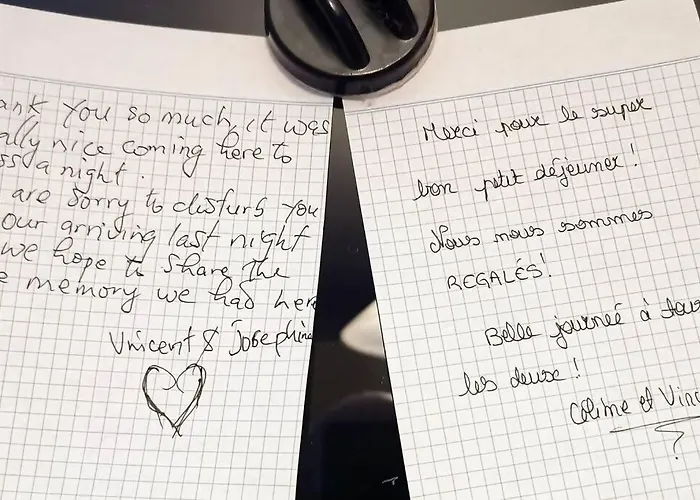 ank You so much, it was
ally nice coming here to
ss a night.
are sorry to disturb you
our arriving last night
we hope to share the
e memory we had here
Vincent & Josephine
Merci pour le super
bon petit déjeuner !
Nous nous sommes
REGALÉS!
Belle journeé à tous
les deux !
Coline et Vinc
?